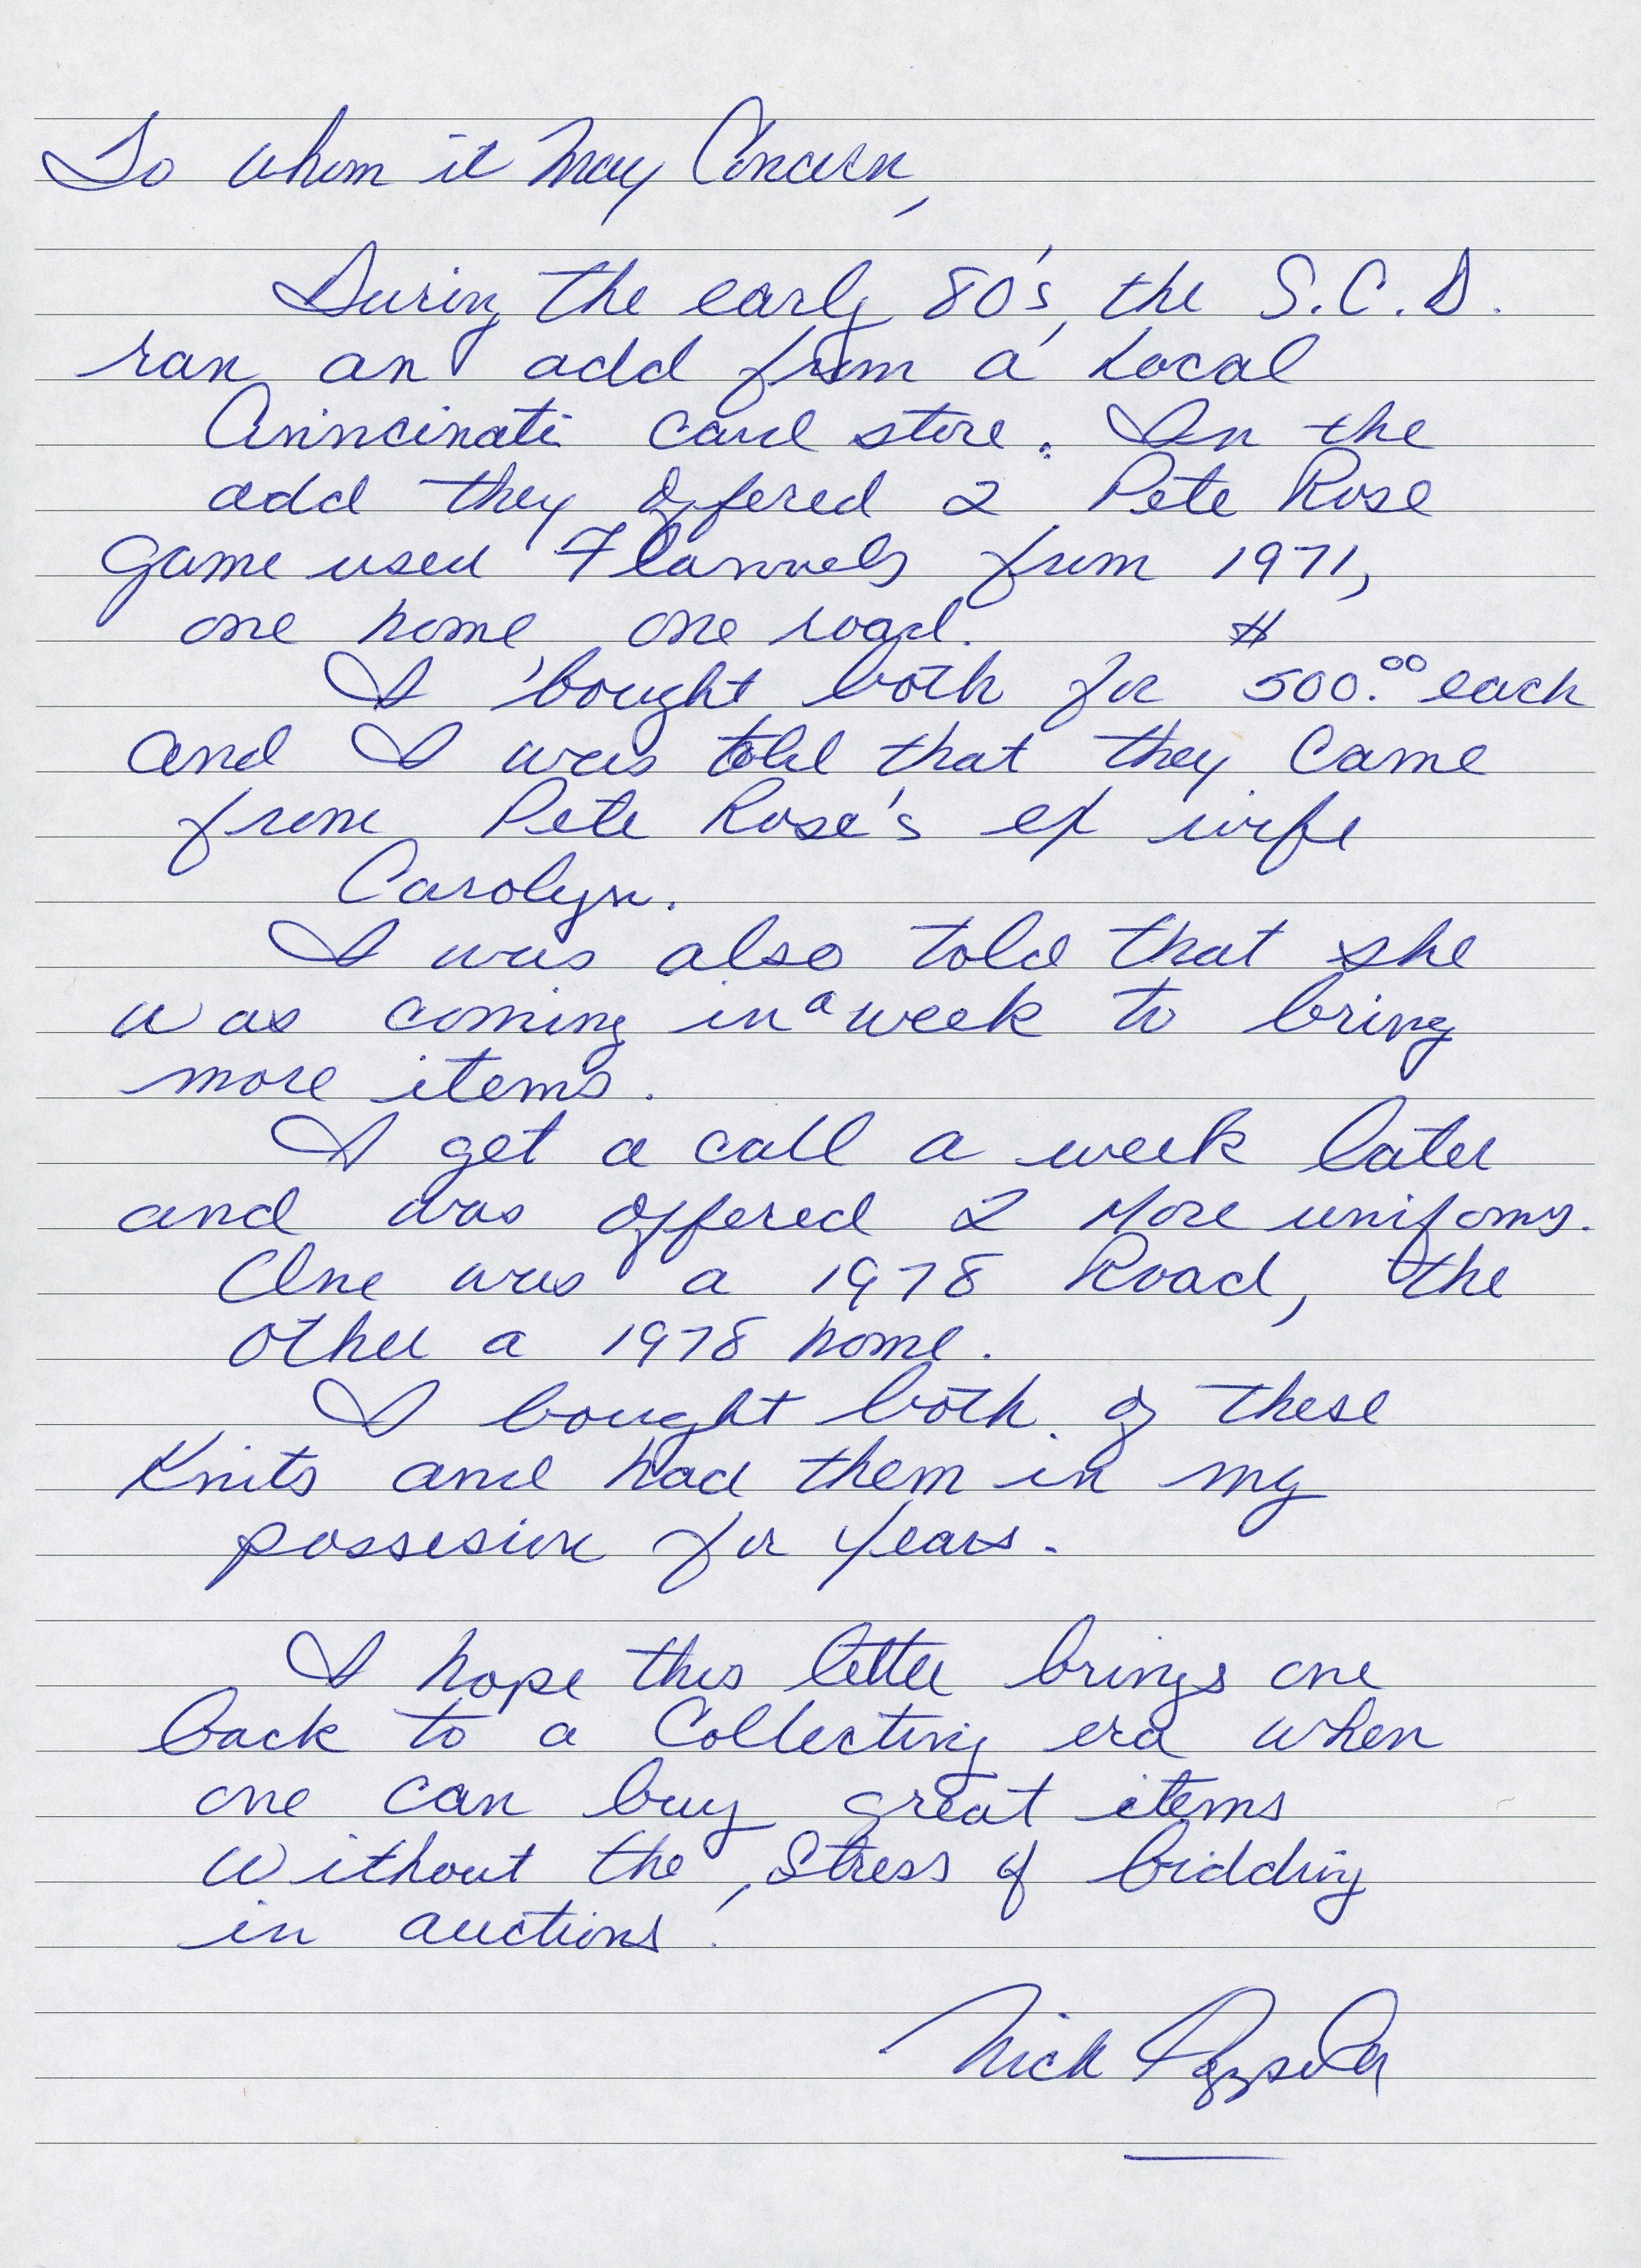 To whom it may Concern,
During the early 80's, the S.C.D.
ran an add from a local
Cinincinati card store. In the
add they offered 2 Pete Rose
game used Flannels from 1971,
one home, one road.
I bought both for $500.00 each
and I was told that they came
from Pete Rose's ex wife
Carolyn.
I was also told that she
was coming in a week to bring
more items.
I get a call a week later
and was offered 2 more uniforms.
One was a 1978 Road, the
other a 1978 home.
I bought both of these
Knits and had them in my
possesion for years.
I hope this letter brings one
back to a Collecting era when
one can buy great items
without the stress of bidding
in auctions!
Nick